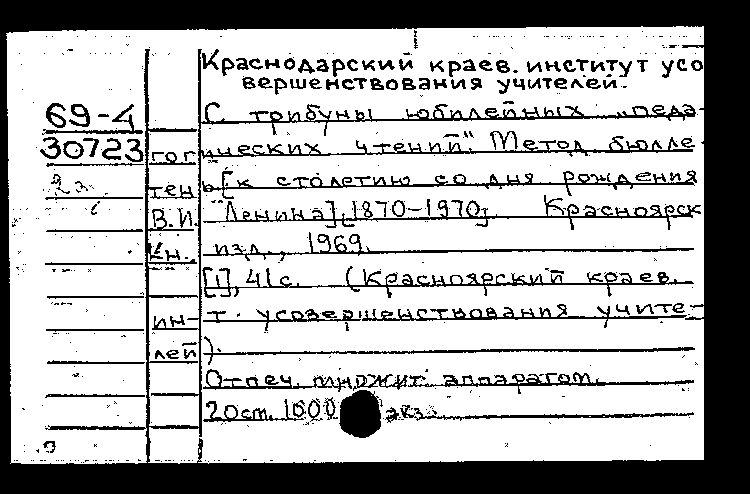 Краснодарский краев. институт усо
вершенствования учителей.
69-4
30723
С трибуны юбилейных „педа-
гогических чтений". Метод. бюлле-
тень [к столетию со дня рождения
В.И. Ленина] [1870-1970] Красноярск
Кн. изд., 1969.
[1], 41 с. (Красноярский краев.
ин-т. усовершенствования учите-
лей).
Отпеч. множит. аппаратом.
20 ст. 1000 экз.